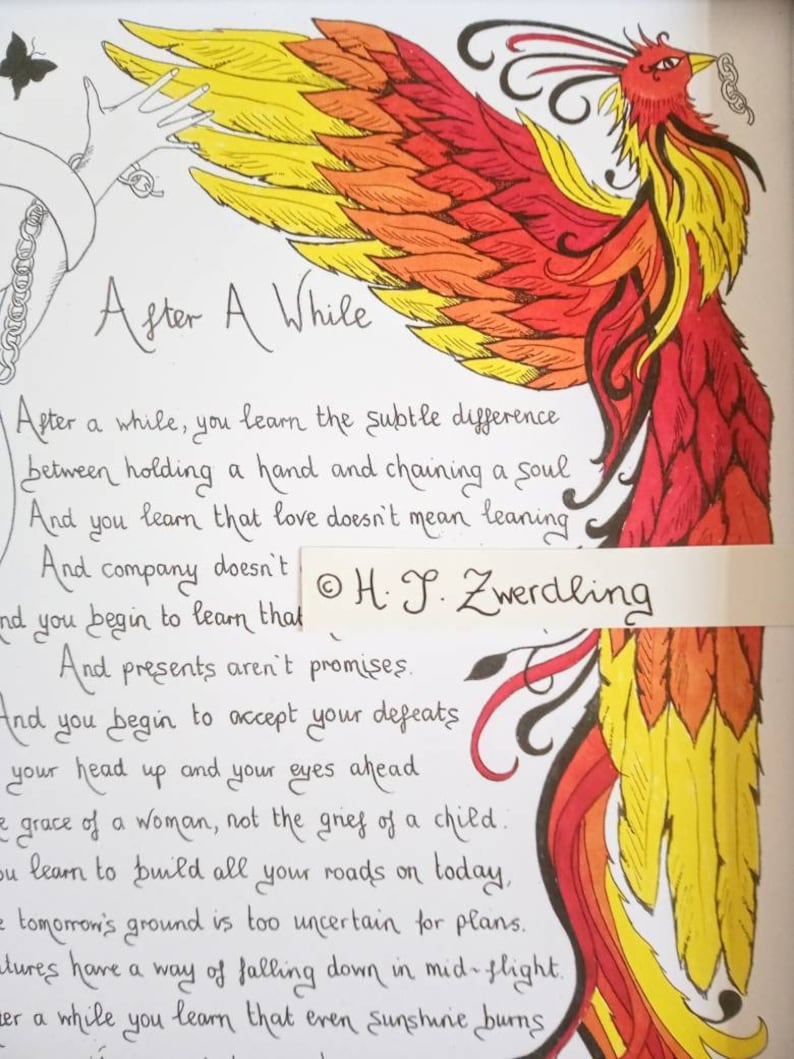 After A While
After a while, you learn the subtle difference
between holding a hand and chaining a soul
And you learn that love doesn't mean leaning
And company doesn't
© H. J. Zwerdling
nd you begin to learn that
And presents aren't promises.
And you begin to accept your defeats
your head up and your eyes ahead
e grace of a woman, not the grief of a child.
ou learn to build all your roads on today,
e tomorrow's ground is too uncertain for plans.
tures have a way of falling down in mid-flight.
ter a while you learn that even sunshine burns